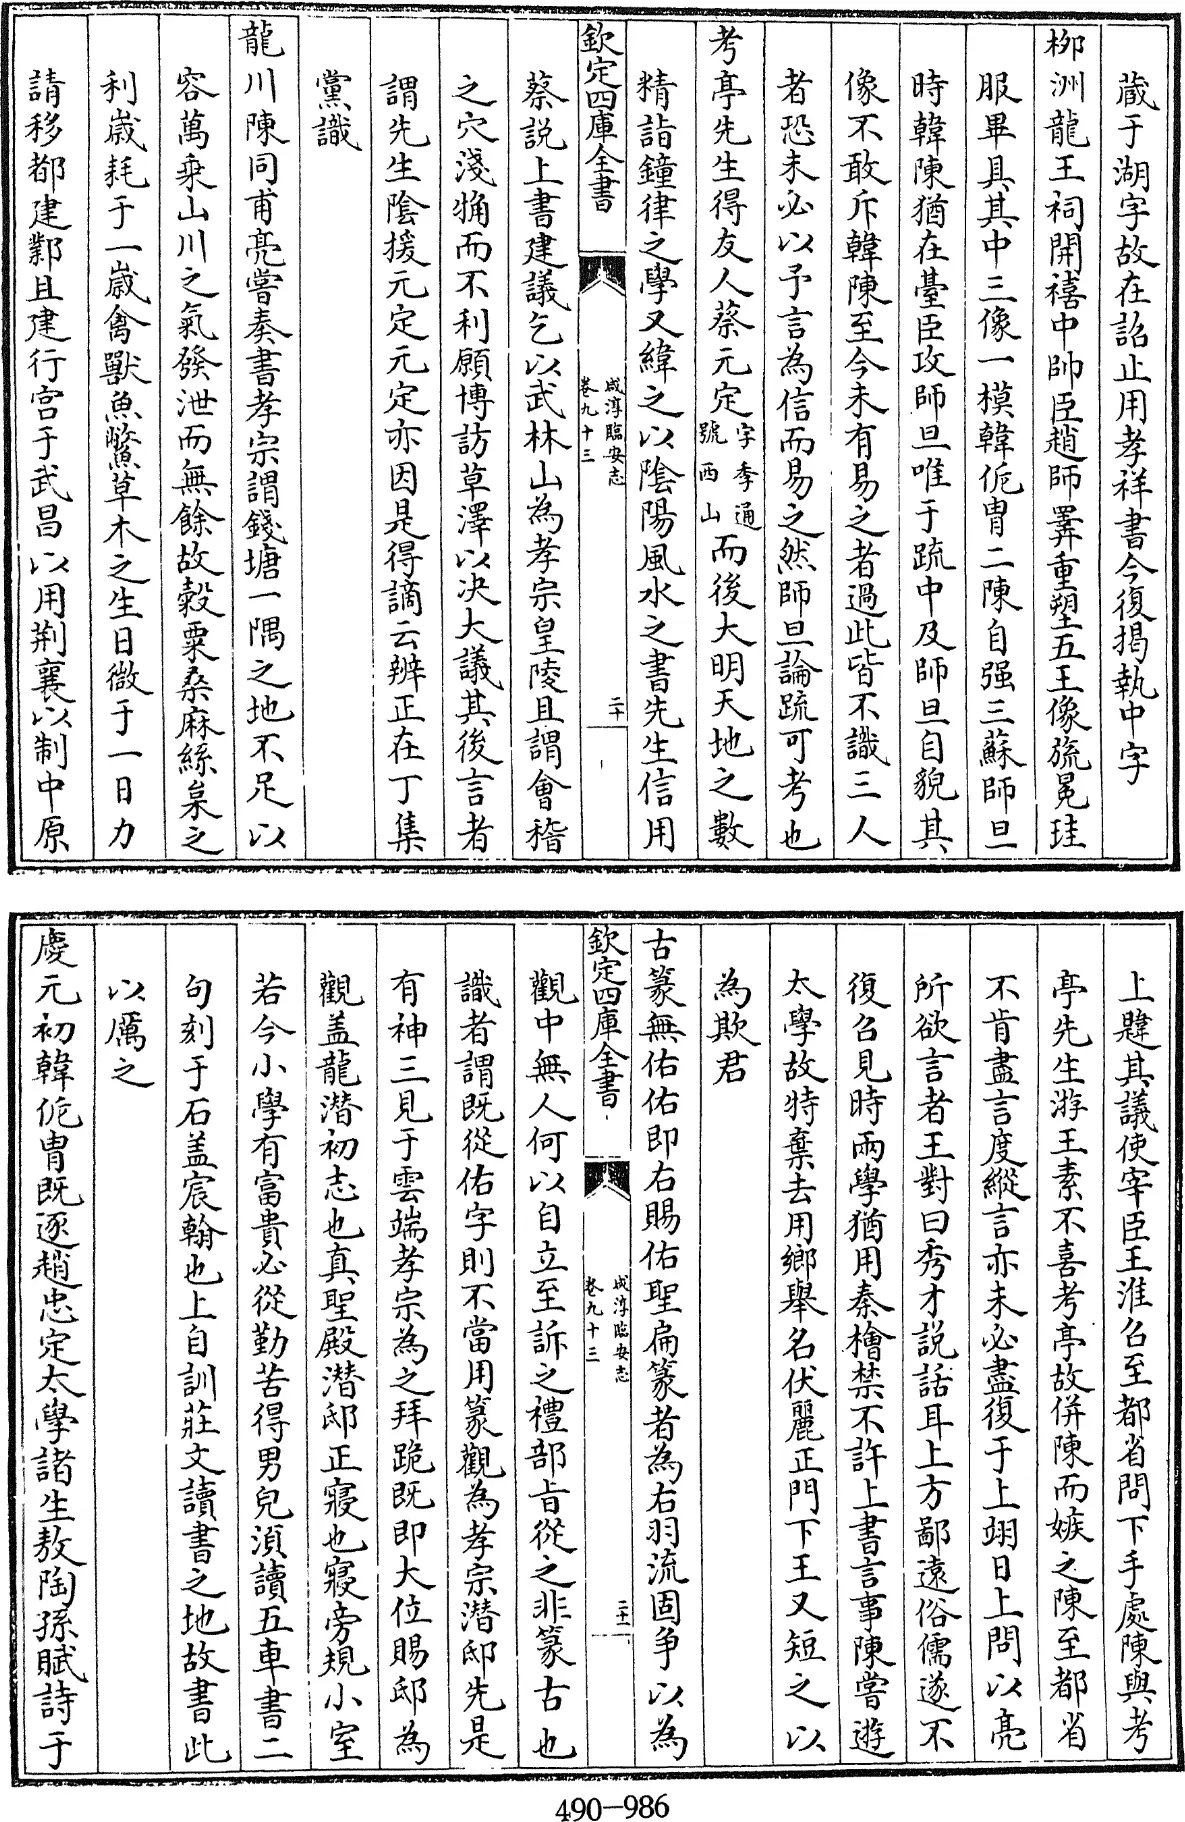 蔵于湖字故在詔止用孝祥書今復揭執中字
栁洲龍王祠開禧中帥臣趙師𢍰重塑五王像旒冕珪
服畢具其中三像一模韓侂胄二陳自强三蘇師旦
時韓陳猶在臺臣攻師旦唯于疏中及師旦自貌其
像不敢斥韓陳至今未有易之者過此皆不識三人
者恐未必以予言為信而易之然師旦論疏可考也
考亭先生得友人蔡元定字季通號西山而後大明天地之數
精詣鐘律之學又緯之以陰陽風水之書先生信用
欽定四庫全書
咸淳臨安志
卷九十三
二十
蔡説上書建議乞以武林山為孝宗皇陵且謂會稽
之穴淺觕而不利願博訪草澤以決大議其後言者
謂先生陰援元定元定亦因是得謫云辨正在丁集
黨識
龍川陳同甫亮嘗奏書孝宗謂錢塘一隅之地不足以
容萬乘山川之氣發泄而無餘故穀粟桑麻絲枲之
利嵗耗于一嵗禽獸魚鱉草木之生日微于一日力
請移都建鄴且建行宫于武昌以用荆襄以制中原
上韙其議使宰臣王淮召至都省問下手處陳與考
亭先生游王素不喜考亭故併陳而嫉之陳至都省
不肯盡言度縱言亦未必盡復于上翊日上問以亮
所欲言者王對曰秀才説話耳上方鄙遠俗儒遂不
復召見時兩學猶用秦檜禁不許上書言事陳嘗遊
太學故特棄去用鄉舉名伏麗正門下王又短之以
為欺君
古篆無佑佑即右賜佑聖扁篆者為右羽流固争以為
欽定四庫全書
咸淳臨安志
卷九十三
二十一
觀中無人何以自立至訴之禮部旨從之非篆古也
識者謂既從佑字則不當用篆觀為孝宗潜邸先是
有神三見于雲端孝宗為之拜跪既即大位賜邸為
觀盖龍潜初志也真聖殿潜邸正寢也寢旁規小室
若今小學有富貴必從勤苦得男兒湏讀五車書二
句刻于石盖宸翰也上自訓莊文讀書之地故書此
以厲之
慶元初韓侂胄既逐趙忠定太學諸生敖陶孫賦詩于
490-986